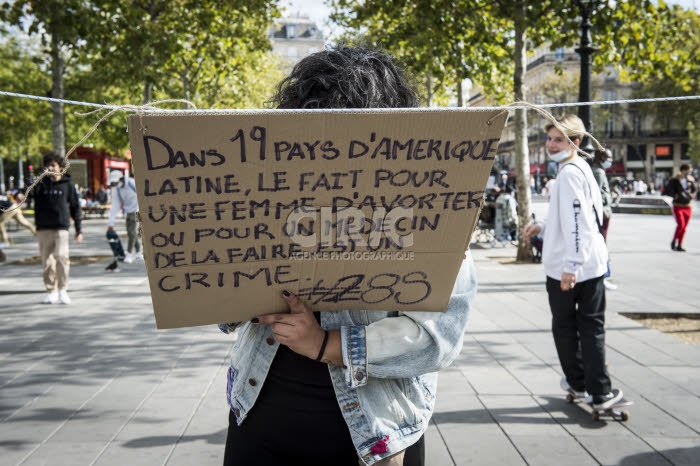 DANS 19 PAYS D'AMERIQUE
LATINE, LE FAIT POUR
UNE FEMME D'AVORTER
OU POUR UN MEDECIN
DE LA FAIRE EST UN
CRIME #28S
CIRIC
AGENCE PHOTOGRAPHIQUE
Champion